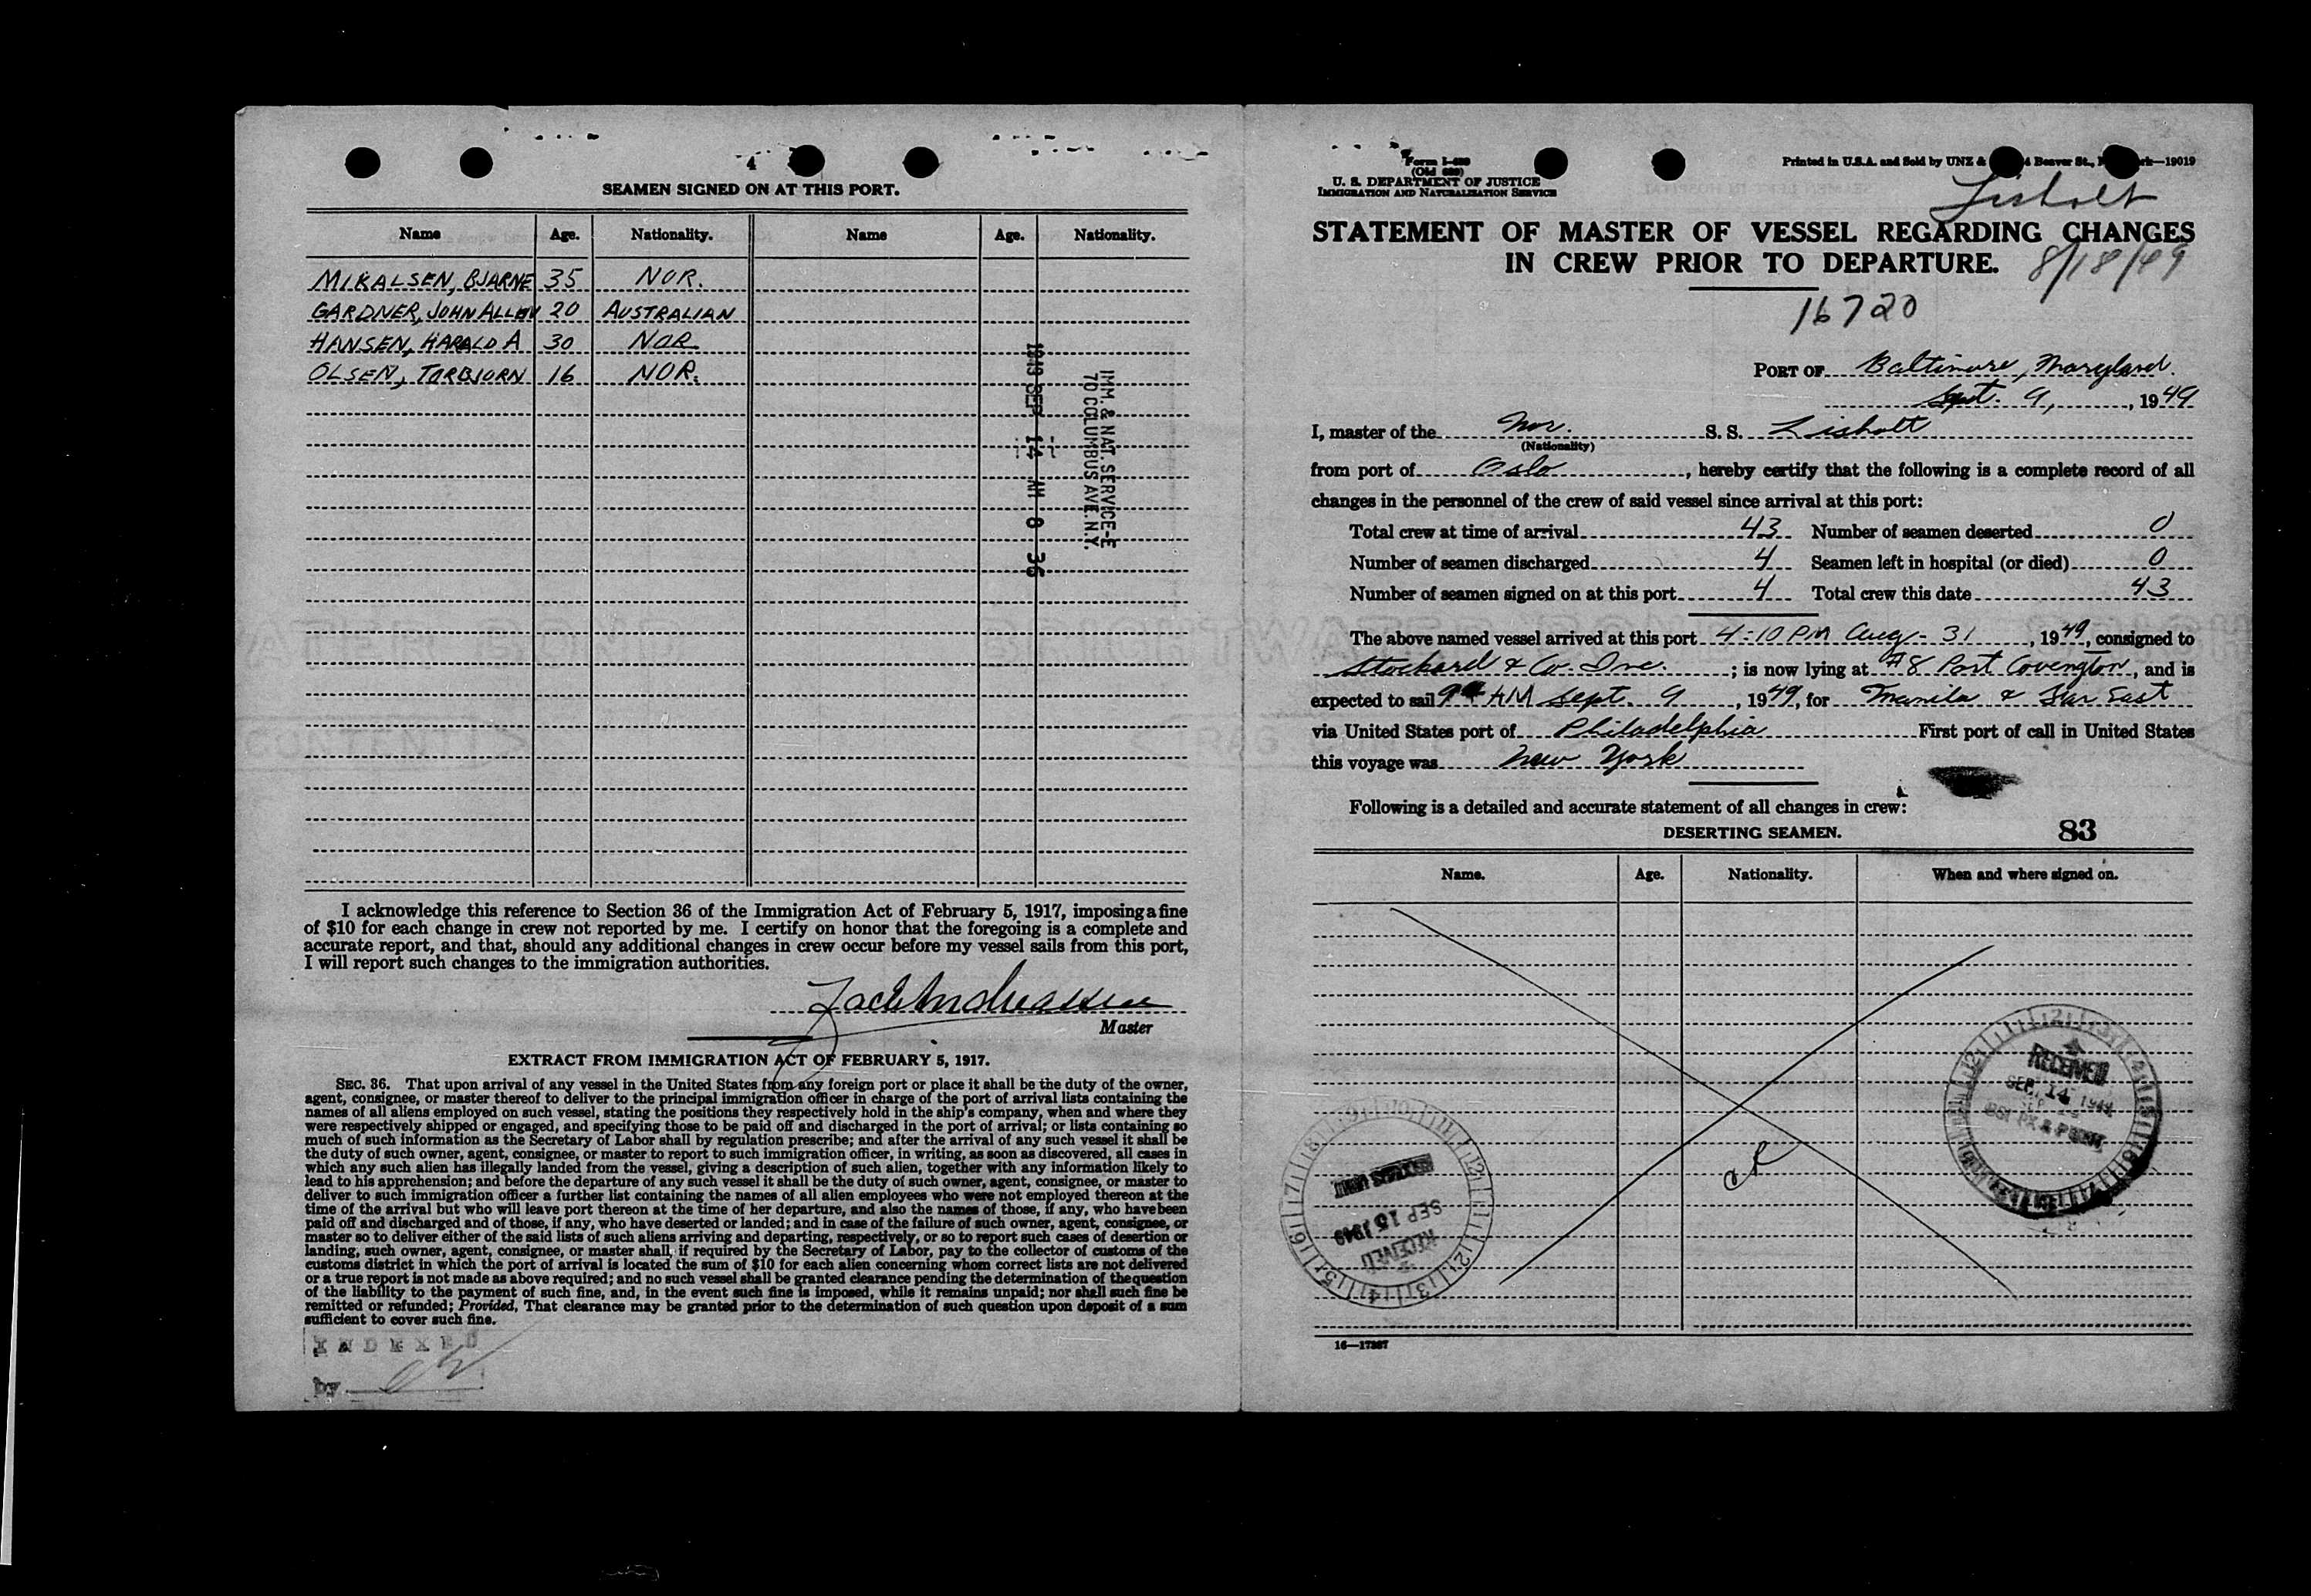 4
SEAMEN SIGNED ON AT THIS PORT.
Name Age. Nationality. Name Age. Nationality.
MIKALSEN, BJARNE 35 NOR.
GARDNER, JOHN ALLAN 20 AUSTRALIAN
HANSEN, HARALD A 30 NOR
OLSEN, TORBJORN 16 NOR.
1949 SEP 14 AM 8 36
IMM. & NAT. SERVICE-E
70 COLUMBUS AVE. N.Y.
I acknowledge this reference to Section 36 of the Immigration Act of February 5, 1917, imposing a fine
of $10 for each change in crew not reported by me. I certify on honor that the foregoing is a complete and
accurate report, and that, should any additional changes in crew occur before my vessel sails from this port,
I will report such changes to the immigration authorities.
Master
EXTRACT FROM IMMIGRATION ACT OF FEBRUARY 5, 1917.
SEC. 36. That upon arrival of any vessel in the United States from any foreign port or place it shall be the duty of the owner,
agent, consignee, or master thereof to deliver to the principal immigration officer in charge of the port of arrival lists containing the
names of all aliens employed on such vessel, stating the positions they respectively hold in the ship's company, when and where they
were respectively shipped or engaged, and specifying those to be paid off and discharged in the port of arrival; or lists containing so
much of such information as the Secretary of Labor shall by regulation prescribe; and after the arrival of any such vessel it shall be
the duty of such owner, agent, consignee, or master to report to such immigration officer, in writing, as soon as discovered, all cases in
which any such alien has illegally landed from the vessel, giving a description of such alien, together with any information likely to
lead to his apprehension; and before the departure of any such vessel it shall be the duty of such owner, agent, consignee, or master to
deliver to such immigration officer a further list containing the names of all alien employees who were not employed thereon at the
time of the arrival but who will leave port thereon at the time of her departure, and also the names of those, if any, who have been
paid off and discharged and of those, if any, who have deserted or landed; and in case of the failure of such owner, agent, consignee, or
master so to deliver either of the said lists of such aliens arriving and departing, respectively, or so to report such cases of desertion or
landing, such owner, agent, consignee, or master shall, if required by the Secretary of Labor, pay to the collector of customs of the
customs district in which the port of arrival is located the sum of $10 for each alien concerning whom correct lists are not delivered
or a true report is not made as above required; and no such vessel shall be granted clearance pending the determination of the question
of the liability to the payment of such fine, and, in the event such fine is imposed, while it remains unpaid; nor shall such fine be
remitted or refunded; Provided, That clearance may be granted prior to the determination of such question upon deposit of a sum
sufficient to cover such fine.
INDEXED
by
Form I-489
(Old 689)
U. S. DEPARTMENT OF JUSTICE
IMMIGRATION AND NATURALIZATION SERVICE
Printed in U.S.A. and Sold by UNZ & 4 Beaver St., rk—19019
Lisholt
STATEMENT OF MASTER OF VESSEL REGARDING CHANGES
IN CREW PRIOR TO DEPARTURE.
8/18/49
16720
PORT OF Baltimore, Maryland.
Sept. 9, , 1949
I, master of the Nor. S. S. Lisholt
(Nationality)
from port of Oslo , hereby certify that the following is a complete record of all
changes in the personnel of the crew of said vessel since arrival at this port:
Total crew at time of arrival 43 Number of seamen deserted 0
Number of seamen discharged 4 Seamen left in hospital (or died) 0
Number of seamen signed on at this port 4 Total crew this date 43
The above named vessel arrived at this port 4:10 PM Aug. 31 , 1949, consigned to
Stockard & Co. Inc. ; is now lying at #8 Port Covington, and is
expected to sail 9 AM Sept. 9 , 1949, for Manila & Far East
via United States port of Philadelphia First port of call in United States
this voyage was New York
Following is a detailed and accurate statement of all changes in crew:
DESERTING SEAMEN. 83
Name. Age. Nationality. When and where signed on.
RECEIVED
SEP 14
RECEIVED
SEP 15 1949
16—17287